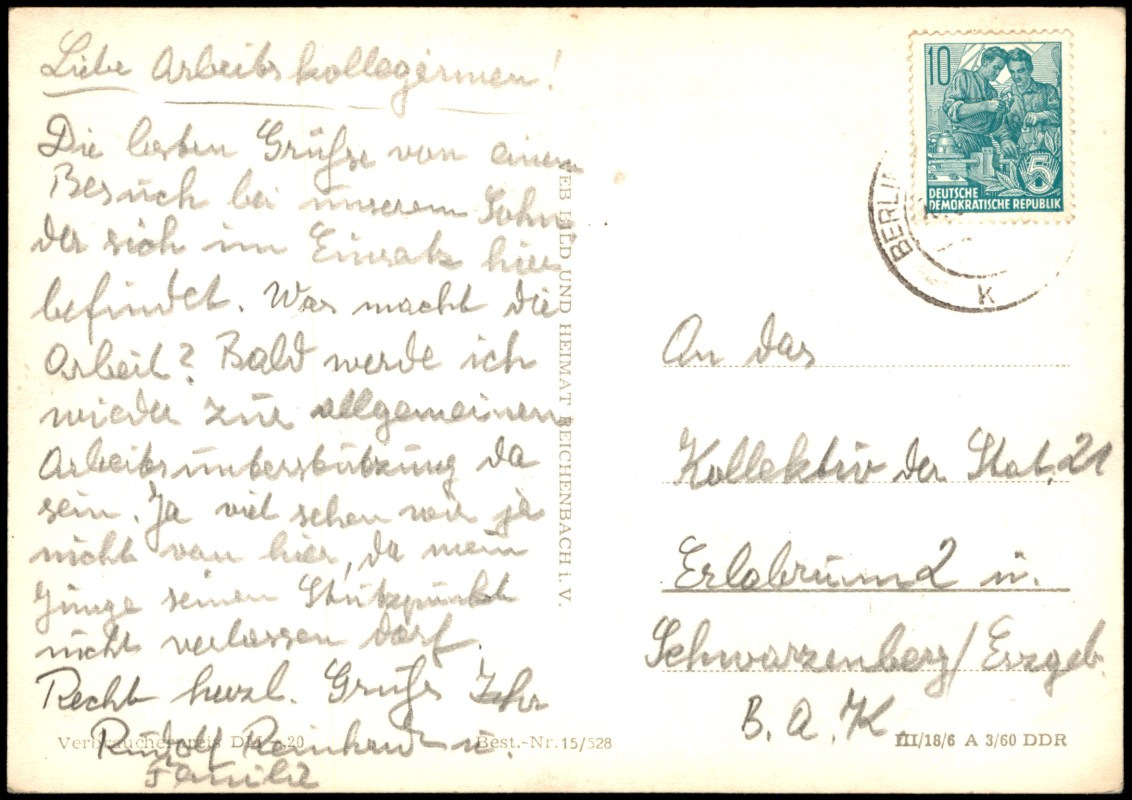 Liebe Arbeitskolleginnen!
Die besten Grüsse von einem
Besuch bei unserem Sohn
der sich im Einsatz hier
befindet. Was macht die
Arbeit? Bald werde ich
wieder zur allgemeinen
Arbeitsunterstützung da
sein. Ja viel sehen wir ja
nicht von hier, da mein
Junge seinen Stützpunkt
nicht verlassen darf.
Recht herzl. Grüße Ihr
Rudolf Reinhardt u.
Familie
Verbraucherpreis DM -,20
Best.-Nr. 15/528
VEB BILD UND HEIMAT REICHENBACH i. V.
10
5
DEUTSCHE
DEMOKRATISCHE REPUBLIK
BERLIN
K
An das
Kollektiv der Stat. 21
Erlabrunn 2 ü.
Schwarzenberg/Erzgeb.
B. A. K.
III/18/6 A 3/60 DDR